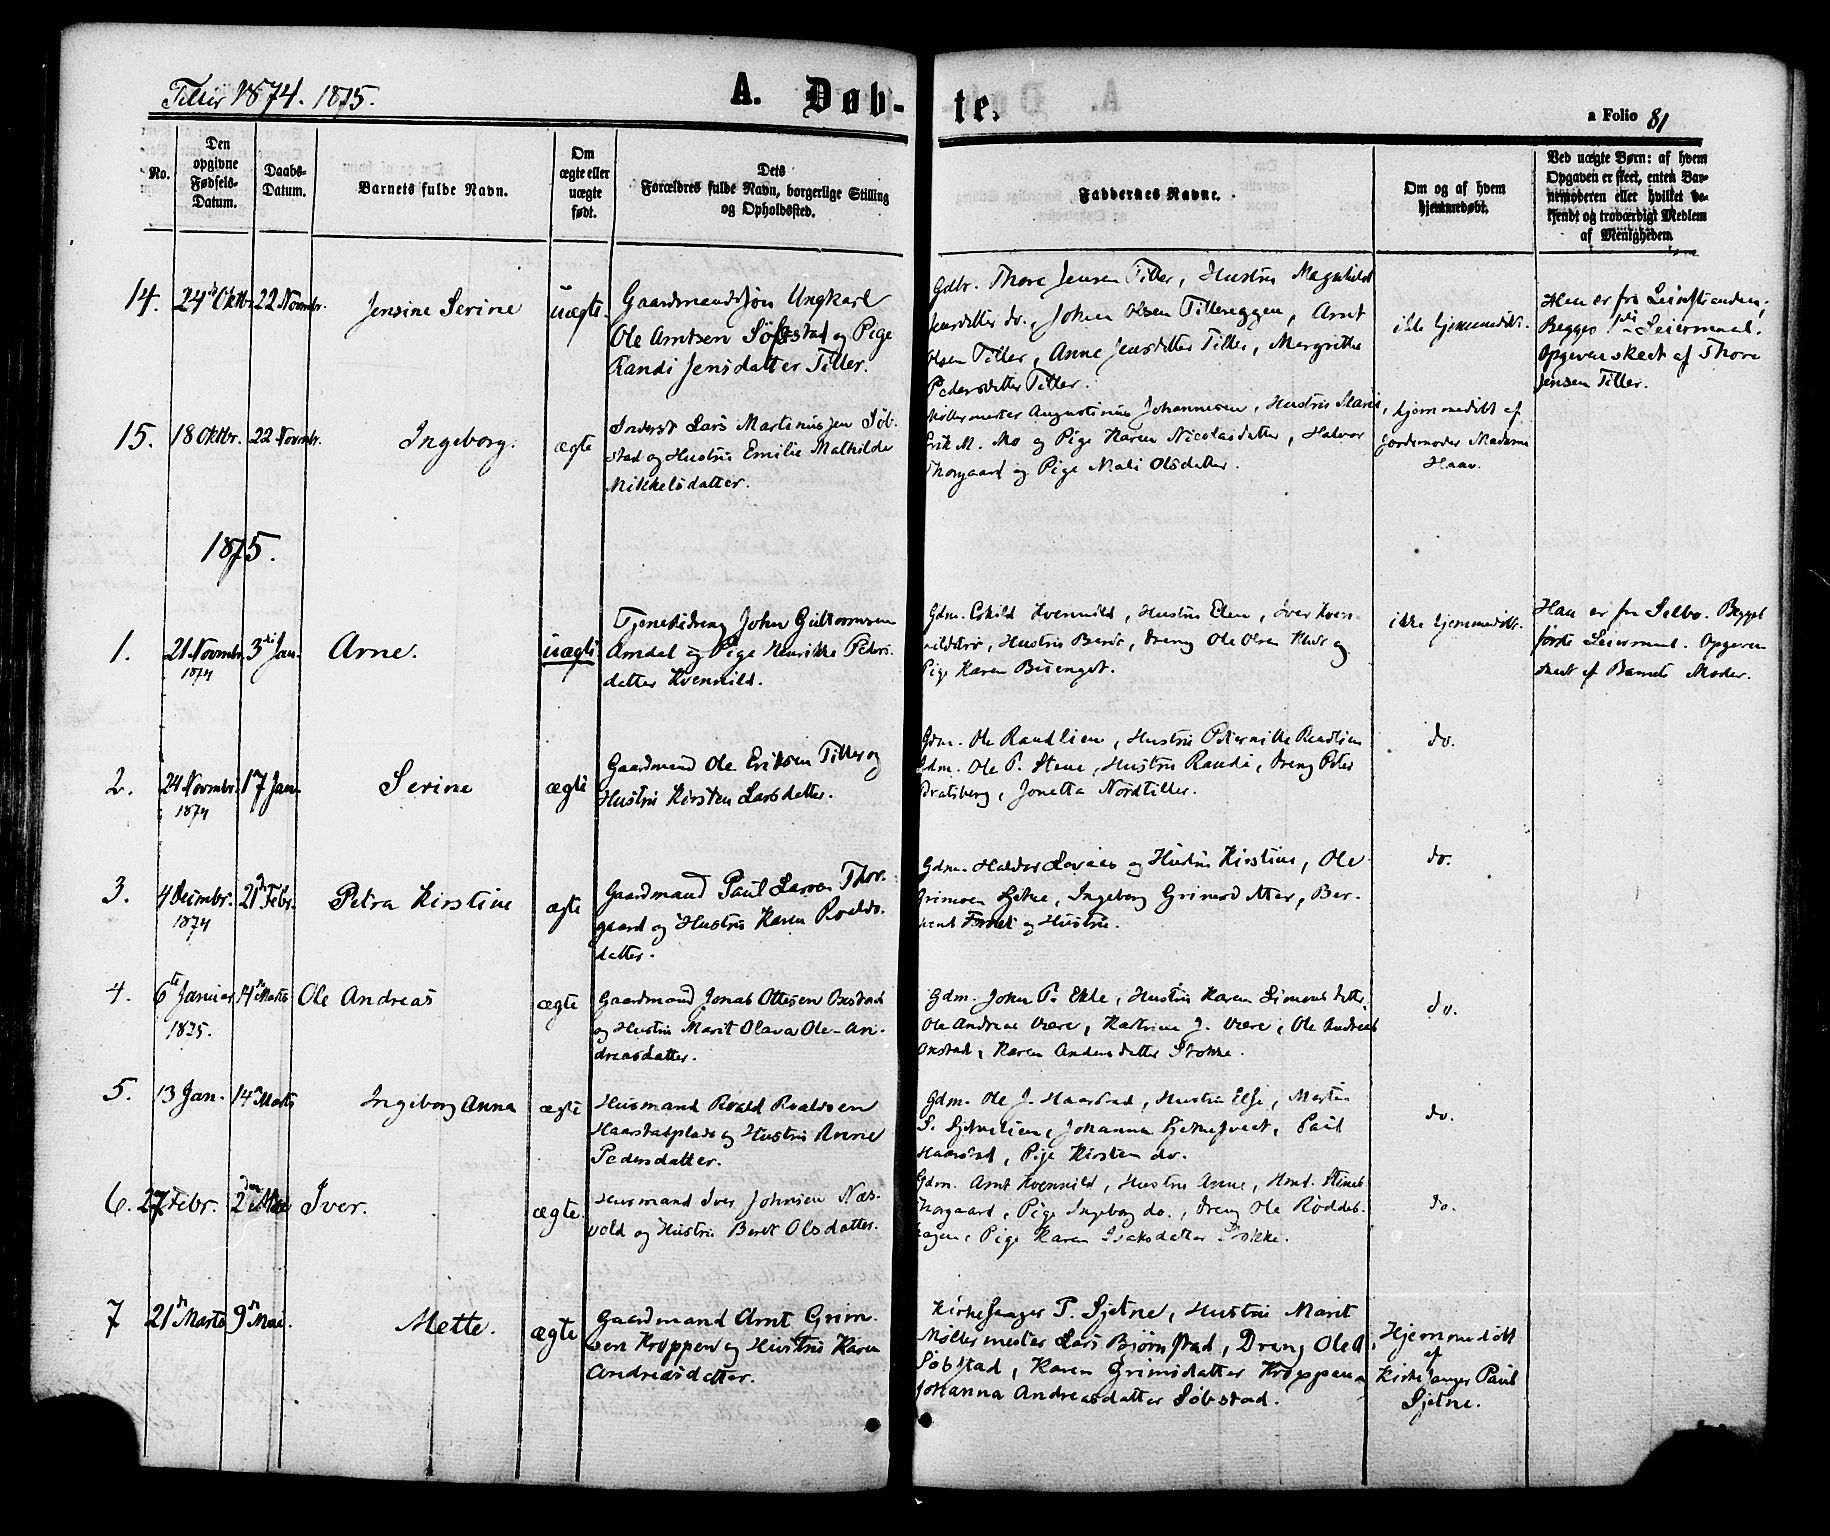 Tiller 1874. 1875.
A. Døb-
te.
a Folio 81
No.
Den opgivne Fødsels-Datum.
Daabs-Datum.
Barnets fulde Navn.
Om ægte eller uægte født.
Dets Forældres fulde Navn, borgerlige Stilling og Opholdssted.
Faddernes Navne.
Om og af hvem hjemmedøbt.
Ved uægte Børn: af hvem Opgaven er skeet, enten Barnemoderen eller hvilket bekjendt og troværdigt Medlem af Menigheden.
14.
24de Oktbr.
22 Novmbr.
Jensine Serine
uægte.
Gaardmandssøn Ungkarl
Ole Arntsen Søbstad og Pige
Randi Jensdatter Tiller.
Gdbr. Thore Jensen Tiller, Hustru Magnhild
Jensdatter do., Johan Olsen Tillereggen, Arnt
Olsen Tiller, Anne Jensdatter Tiller, Margrithe
Pedersdatter Tiller.
ikke hjemmedøbt.
Han er fra Leinstranden;
Begges 1ste Leiermaal.
Opgaven skeet af Thore
Jensen Tiller.
15.
18 Oktbr.
22 Novmbr.
Ingeborg.
ægte
Inderst Lars Martinussen Søb-
stad og Hustru Emilie Mathilde
Mikkelsdatter.
Møllermester Augustinus Johannesen, Hustru Marie,
Erik M. Mo og Pige Karen Nicolasdatter, Halvor
Thorgaard og Pige Mali Olsdatter.
hjemmedøbt af
Jordemoder Madame
Haav.
1875.
1.
21. Novmbr.
1874
3die Jan.
Arne.
uægte
Tjenestedreng John Guttormsen
Amdal og Pige Henrikke Peders-
datter Kvenild.
Gdm. Eskild Kvennild, Hustru Elen, Iver Kven-
nildtrø, Hustru Berit, Dreng Ole Olsen Hust og
Pige Karen Bisenget.
ikke hjemmedøbt.
Han er fra Selbo. Begges
første Leiermaal. Opgaven
skeet af Barnets Moder.
2.
24 Novmbr.
1874
17 Jan.
Serine
ægte
Gaardmand Ole Eriksen Tiller og
Hustru Kirsten Larsdatter.
Gdm. Ole Randlien, Hustru Peternille Randlien
Gdm. Ole P. Stene, Hustru Randi, Dreng Peter
Bratsberg, Jonetta Nordtiller.
do.
3.
4 Decmbr.
1874
21de Febr.
Petra Kirstine
ægte
Gaardmand Paul Larsen Thor-
gaard og Hustru Karen Roalds-
datter.
Gdm. Haldor Løvaas og Hustru Kirstine, Ole
Grimsen Sjetne, Ingeborg Grimsdatter, Ber-
og Hustru.
do.
4.
6te Januar
1875.
14de Marts
Ole Andreas
ægte
Gaardmand Jonas Ottesen Oxstad
og Hustru Marit Olava Ole-An-
dreasdatter.
Gdm. John P. Ekle, Hustru Karen Simonsdatter
Ole Andreas Være, Kathrine J. Være, Ole Andreas
Oxstad, Karen Andersdatter Stokke.
do.
5.
13 Jan.
14de Marts
Ingeborg Anna
ægte
Husmand Roald Roaldsen
Haarstadplads og Hustru Anne
Pedersdatter.
Gdm. Ole J. Haarstad, Hustru Else, Morten
S. Sjetnelien, Johanna Sjetne, Paul
Haarstad, Pige Kirsten do.
do.
6.
27 Febr.
2den Mai
Iver.
ægte.
Husmand Iver Johnsen Næs-
vold og Hustru Berit Olsdatter.
Gdm. Arnt Kvennild, Hustru Anne, Hmd.
Thorgaard, Pige Ingeborg do., Dreng Ole Røddes-
hagen, Pige Karen Isaksdatter Stokke.
do.
7
21de Marts
9de Mai.
Mette.
ægte
Gaardmand Arnt Grim-
sen Kroppen og Hustru Karen
Andreasdatter.
Kirkesanger P. Sjetne, Hustru Marit
Møllermester Lars Bjørnstad, Dreng Ole A.
Søbstad, Karen Grimsdatter Kroppen
Johanna Andreasdatter Søbstad.
Hjemmedøbt
af
Kirkesanger Paul
Sjetne.